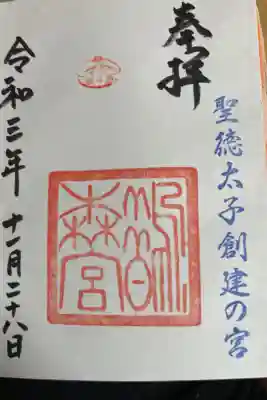 奉拝
聖徳太子創建の宮
鵲森宮
令和三年十一月二十八日